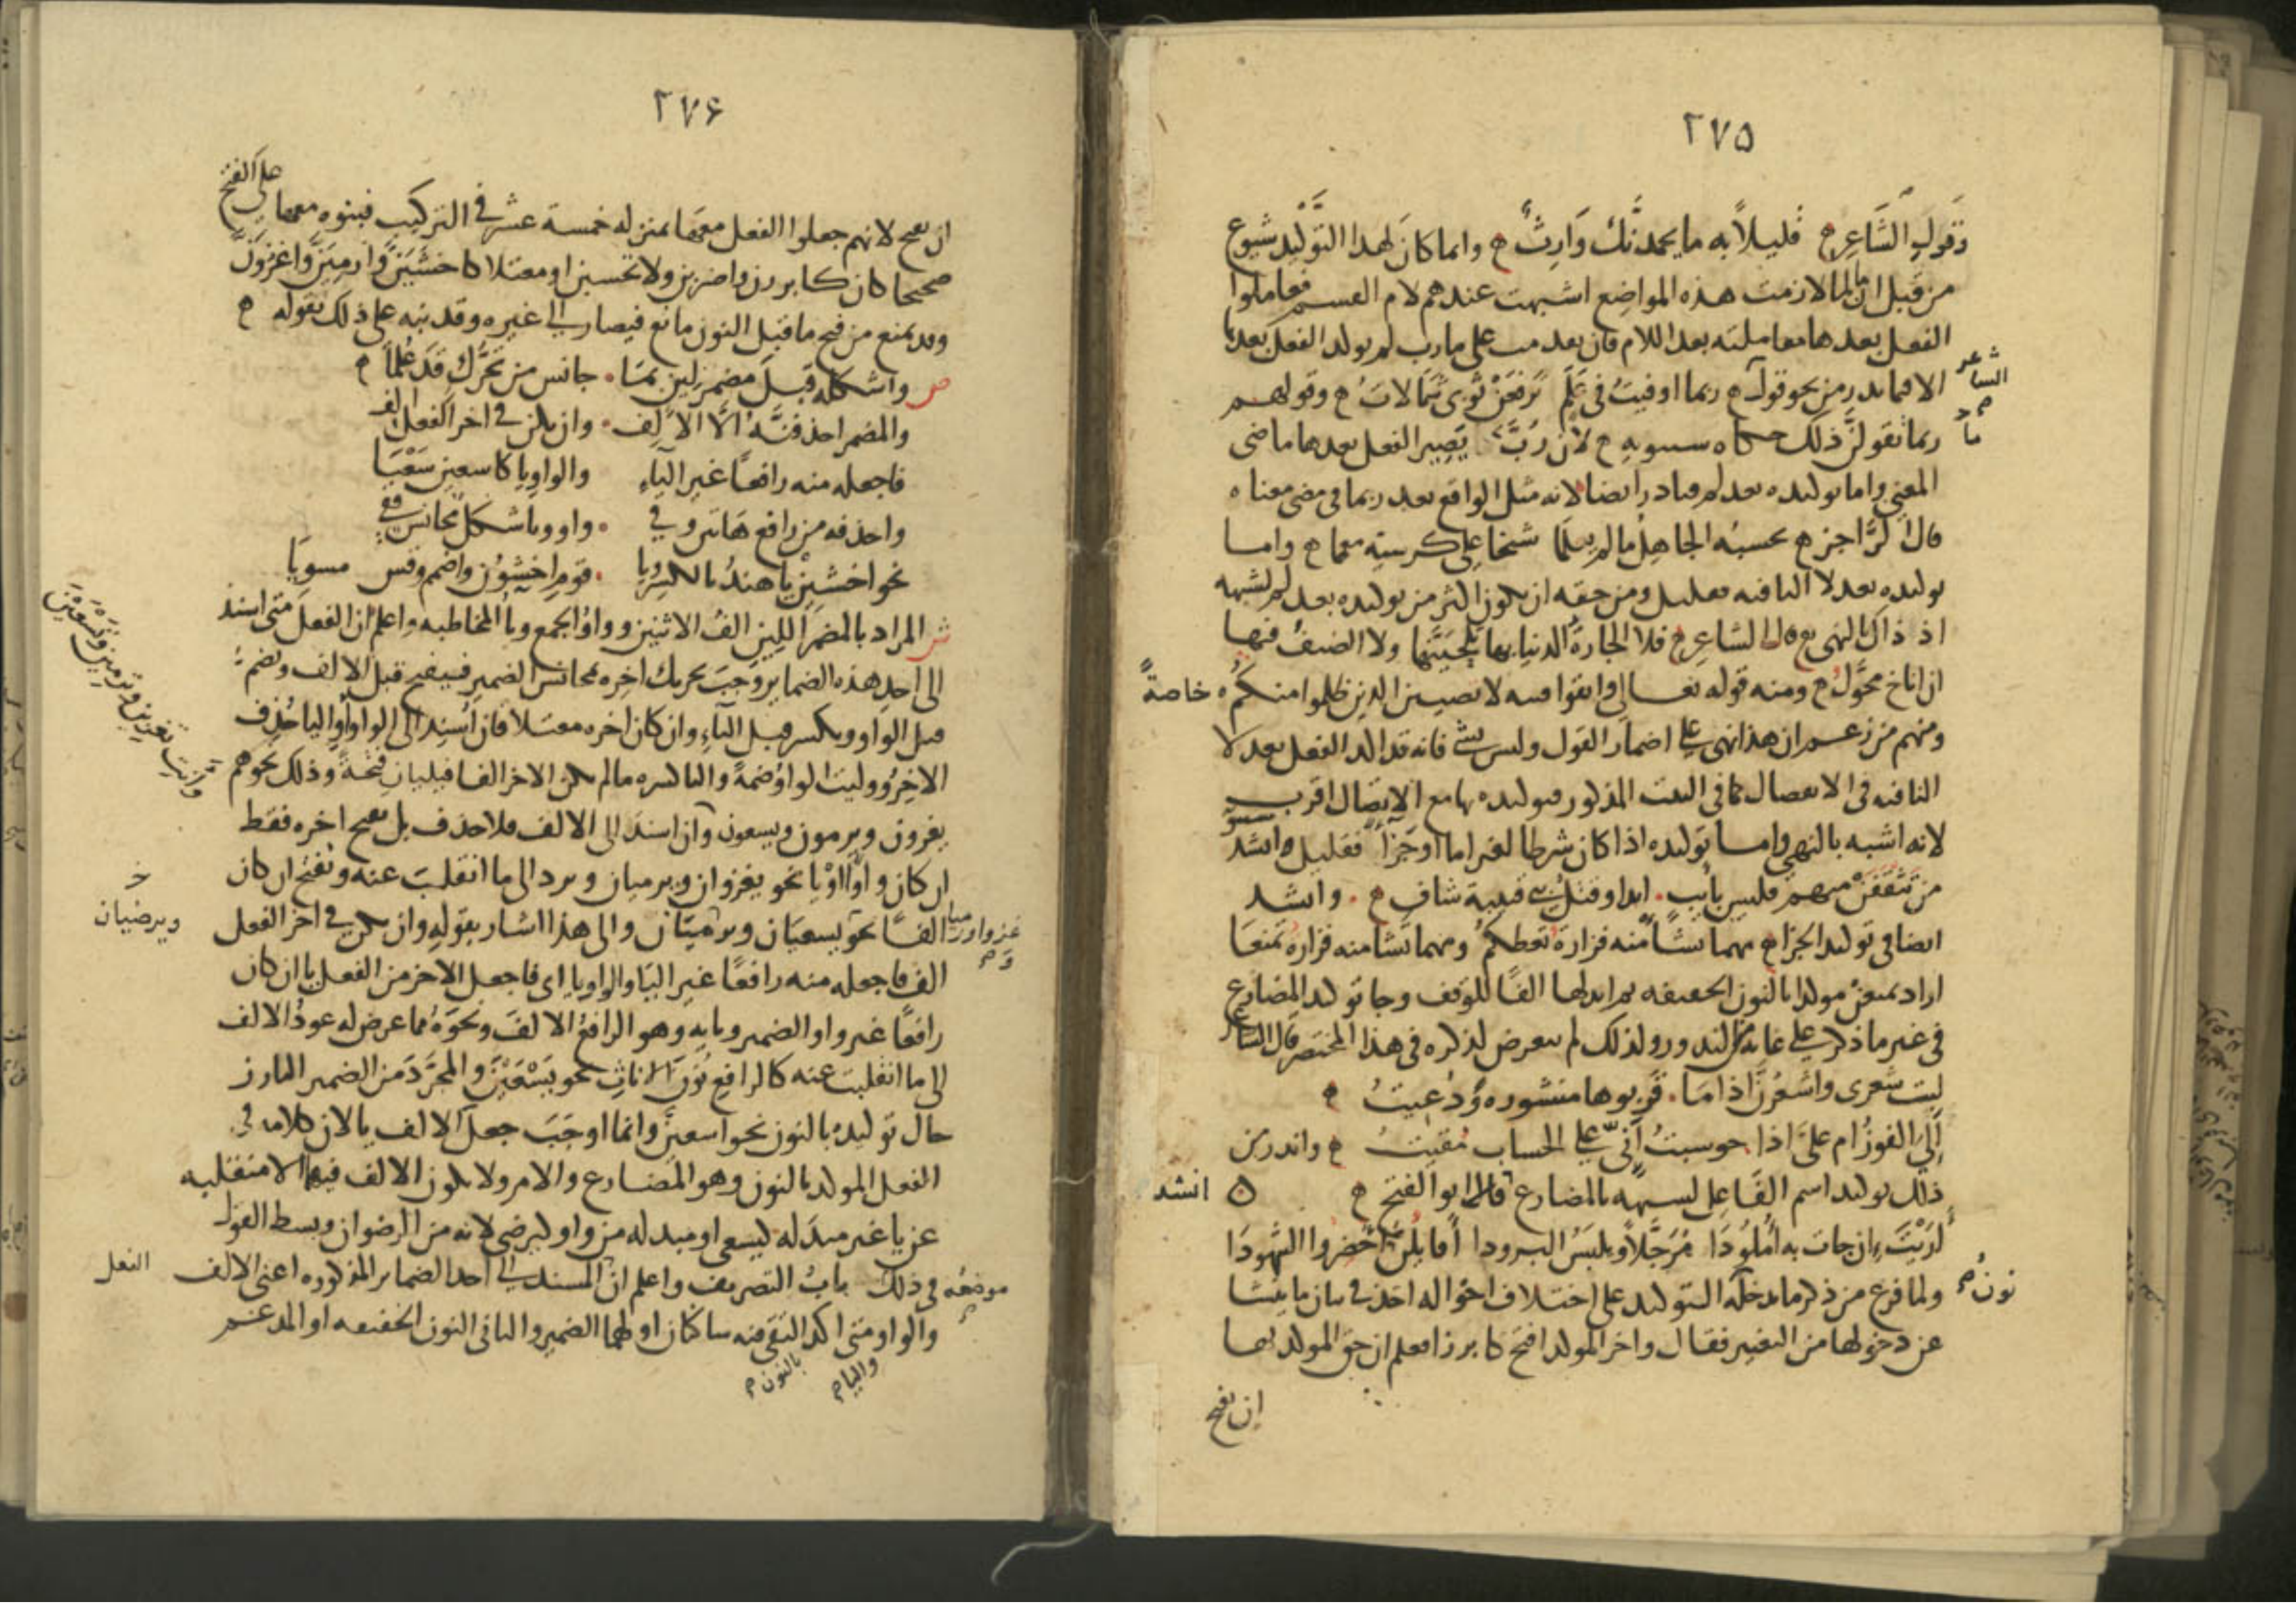 ٢٧٥
وَقَولِ الشَّاعِرِ م قليلاً به ما يحمدنَّك وَارِثٌ م وانما كان لهذا التوكيد شيوع
من قبل ان ما لما لازمت هذه المواضع اشبهت عندهم لام القسم فعاملوا
الفعل بعدها معاملته بعد اللام فان بعدت على ما رب لم يولد الفعل بعدها
الا فيما ندر من نحو قول م ربما اوفيتُ في عَلَمٍ تَرفعَنْ ثوبي شَمالاتُ م وقولهم
الشاعر
ربما تقولنَّ ذلك حكاه سيبويه م لان رُبَّ يصير الفعل بعدها ماضي
ما
المعنى واما توكيده بعد لم فنادر ايضا لانه مثل الواقع بعد ربما في مضي معناه
قال الرَّاجز م يحسبُه الجاهلُ ما لم يعلَما شيخا على كرسيّه معمما م واما
توكيده بعد لا النافيه فقليل ومن حقه ان يكون اكثر من توكيده بعد لم لشبهه
اذ ذاك بالنهي م قال الشاعر م فلا الجارةُ الدنيا بها تَلْحَيَنَّها ولا الضيفُ فيها
ان اناخ محوَّلُ م ومنه قوله تعالى واتقوا فتنه لا تصيبن الذين ظلموا منكم خاصةً
ومنهم من زعم ان هذا نهي على اضمار القول وليس بشي فانه قد اكد الفعل بعد لا
النافيه في الانفصال كما في البيت المذكور فتوكيده بها مع الاتصال اقرب
لانه اشبه بالنهي واما توكيده اذا كان شرطا لغير اما او جَزآ فقليل وانشد س
من تثقفَنْ منهم فليس بآيب ابدا وقتلُ بني قتيبة شافِ م وانشد
ايضا في توكيد الجزا م مهما تشأ منه فزارةُ تعطكم ومهما تشا منه فزارة تمنعا
اراد تمنعنْ مولدا بالنون الخفيفه ثم ابدلها الفًا للوقف وجا توكيد المضارع
في غير ما ذكر على غاية من الندور ولذلك لم يتعرض لذكره في هذا المختصر قال الشاعر
ليت شعري واشعُرنَّ اذا مَا قربوها منشوره وَدُعيتُ م
أَلِيَ الفوزُ ام عليَّ اذا حوسبتُ أَنّي على الحساب مُقيتُ م واندر من
ذلك توكيد اسم الفَاعل لشبهه بالمضارع قال ابو الفتح م انشد
أرَيْتَ ان جات به اُملُودَا مُرَجَّلاً ويلبَسُ البرودا أقايلُنَّ احضروا الشهودَا
ولما فرغ من ذكر ما تدخله التوكيد على اختلاف احواله اخذ في بيان ما ينشا
نون
عن دخولها من التغيير فقال واخر المولد افتح كابرزا فعلم ان حق المولد بها
ان يفتح
٢٧۶
ان يفتح لانهم جعلوا الفعل معها بمنزله خمسة عشر في التركيب فبنوه معها على الفتح
صحيحا كان كابرزن واضربن ولا تحسبن او معتلا كاخشَيَنَّ وَارميَنَّ واغزوَنَّ
وقد يمنع من فتح ما قبل النون مانع فيصار الى غيره وقد نبه على ذلك بقوله م
ص واشكله قبلَ مضمرٍ لين بما جانس من تحرُّك قد علما م
والمضمر احذفنَّهُ الَّا الالف وان يكن في اخر الفعل الف
فاجعله منه رافعًا غير الياءِ والواو يا كاسعين سَعْيَا
واحذفه من رافع هَاتين وفي واو ويا شكل مجانس قفي
نحو اخشينْ يا هندُ بالكسر ويا قوم اخشوُن واضمم وقس مسويَا
ش المراد بالمضمر اللين الفُ الاثنين وواو الجمع ويا المخاطبه واعلم ان الفعل متى اسند
الى احد هذه الضماير وَجَبَ تحريك اخره بمجانس الضمير فيفتح قبل الالف ويضم
قبل الواو ويكسر قبل الياءِ وان كان اخره معتلا فان اُسند الى الواو او اليا حُذف
الاخِر ووليت الواو ضمةً واليا كسره ما لم يكن الاخر الفا فيليان فتحةً وذلك نحو هم
يغزون ويرمون ويسعون وان اسند الى الالف فلا حذف بل يفتح اخره فقط
وانت تغزين وترمين وتسعَيْنَ
ان كان واوًا او يا نحو يغزوان ويرميان ويرد الى ما انقلبت عنه ويفتح ان كان
الفًا نحو يسعيَان ويرميَان والى هذا اشار بقوله وان يكن في اخر الفعل
غزوا ورميا
ويرضيان
الف فاجعله منه رافعًا غير اليا والواو يا اي فاجعل الاخر من الفعل يا ان كان
رافعًا غير واو الضمير ويايه وهو الرافع الالفَ ونحوَهُ مما عرض له عود الالف
الى ما انقلبت عنه كالرافع نونَ الاناثِ نحو يَسْعَيْنَ والمجرَّدَ من الضمير البارز
حال توكيده بالنون نحو اسعينَّ وانما اوجَبَ جعل الالف يا لان كلامه في
الفعل المولد بالنون وهو المضارع والامر ولا يكون الالف فيهما الا منقلبه
عن يا غير مبدَله ليسعى او مبدله من واو ليرضى لانه من الرضوان وبسط القول
في ذلك باب التصريف واعلم ان المسند الى احد الضماير المذكوره اعني الالف
موضعُه
الفعل
والواو متى اكد التقى فيه ساكنان اولهما الضمير والثاني النون الخفيفه او المدغم
واليا م
بالنون م